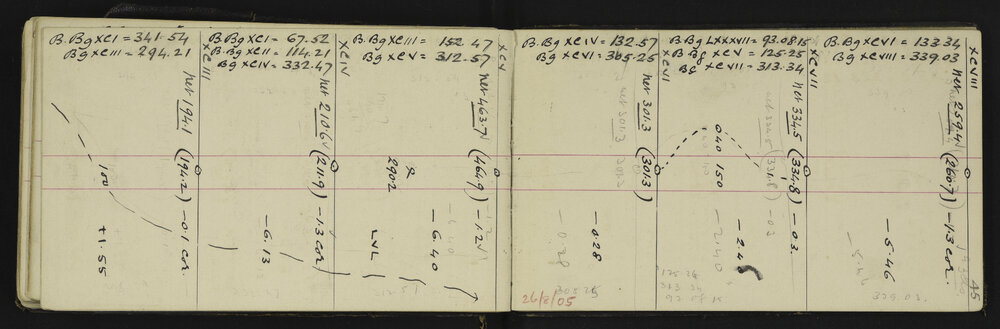 B.Bg XCI = 341.54
Bg XCIII = 294.21
XCIII
net 194.1 (194.2) -0.1 cor.
100
+1.55
B.Bg XCI = 67.52
B.Bg XCII = 114.21
Bg XCIV = 332.47
XCIV
net 210.6 (211.9) -1.3 cor
-6.13
B.Bg XCIII = 152.47
Bg XCV = 312.57
XCV
net 463.7 (464.9) -1.2
2902
LVL
-6.40
B.Bg XCIV = 132.57
Bg XCVI = 305.25
XCVI
net 301.3 (301.3)
-0.28
26/8/05
B.Bg LXXXVII = 93.0815
B.Bg XCV = 125.25
Bg XCVII = 313.34
XCVII
net 334.5 (334.8) -0.3.
040 150
B.Bg XCVI = 133.34
Bg XCVIII = 339.03
XCVIII
net 259.4 (260.7) -1.3 cor.
-5.46
45